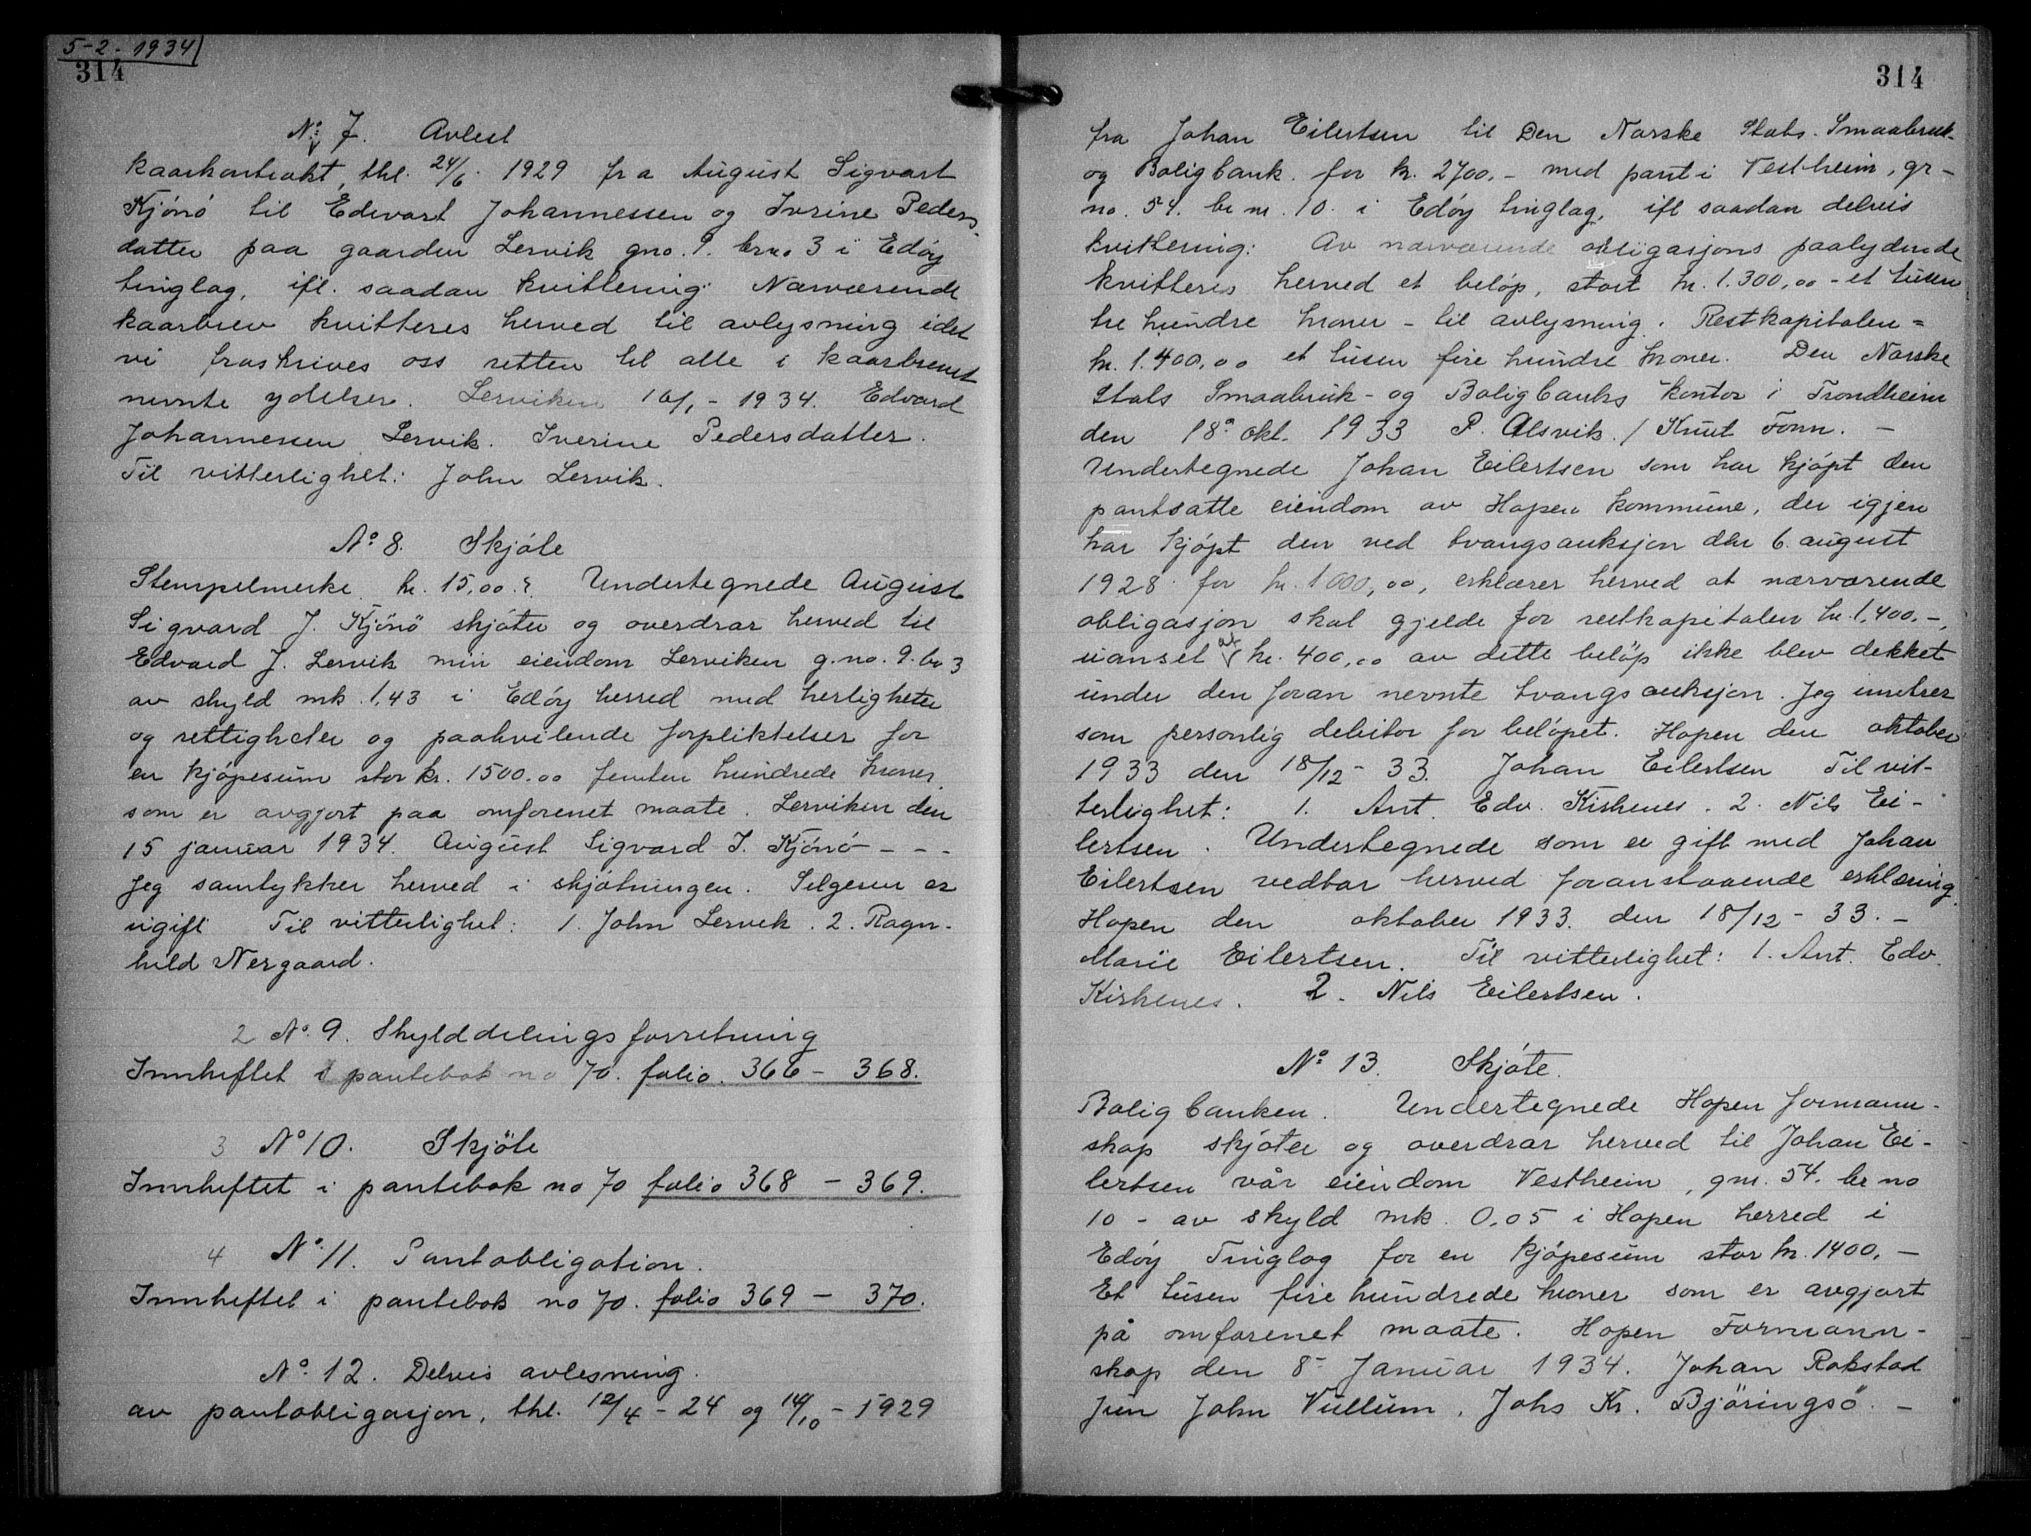 5-2-1934
314
No 7. Avlest
kaarkontrakt, thl. 24/6. 1929 fra August Sigvart
Kjönö til Edvart Johannessen og Iverine Peders-
datter paa gaarden Lervik gno. 9. brno 3 i Edöy
tinglag, ifl. saadan kvittering: Nærværende
kaarbrev kvitteres herved til avlysning idet
vi fraskrives oss retten til alle i kaarbrevet
nevnte ydelser. Lerviken 16/1 - 1934. Edvard
Johannessen Lervik. Iverine Pedersdatter.
Til vitterlighet: John Lervik.
No 8. Skjöte
Stempelmerke kr. 15,00. Undertegnede August
Sigvard J. Kjönö skjöter og overdrar herved til
Edvard J. Lervik min eiendom Lerviken g.no. 9. br 3
av skyld mk. 1,43 i Edöy herred med herligheter
og rettigheter og paahvilende forpliktelser for
en kjöpesum stor kr. 1500.00 femten hundrede kroner
som er avgjort paa omforenet maate. Lerviken den
15 januar 1934. August Sigvard J. Kjönö - - -
Jeg samtykker herved i skjötningen. Selgeren er
ugift Til vitterlighet: 1. John Lervik. 2. Ragn-
hild Nergaard.
2 No. 9. Skylddelingsforretning
Innheftet i pantebok no 70. folio. 366 - 368.
3 No 10. Skjöte
Innheftet i pantebok no 70 folio 368 - 369.
4 No. 11. Pantobligation.
Innheftet i pantebok no 70. folio 369 - 370.
No. 12. Delvis avlesning.
av pantobligasjon, thl. 12/4 - 24 og 14/10 - 1929
314
fra Johan Eilertsen til Den Norske Stats. Smaabruk-
og Boligbank. for kr. 2700.- med pant i Vestheim, gr-
no. 54. br nr. 10. i Edöy tinglag, ifl saadan delvis
kvittering: Av nærværende obligasjons paalydende
kvitteres herved et belöp, stort kr. 1.300,00 - et tusen
tre hundre kroner - til avlysning. Restkapitalen =
kr. 1.400,00 et tusen fire hundre kroner. Den Norske
Stats Smaabruk- og Boligbanks kontor i Trondheim
den 18. okt. 1933 P. Alsvik. / Knut Fonn. -
Undertegnede Johan Eilertsen som har kjöpt den
pantsatte eiendom av Hopen kommune, der igjen
har kjöpt den ved tvangsauksjon den 6. august
1928 for kr. 1000,00, erklærer herved at nærværende
obligasjon skal gjelde for restkapitalen kr. 1.400.-,
uanset at kr. 400,00 av dette belöp ikke blev dekket
under den foran nevnte tvangsauksjon. Jeg inntrer
som personlig debitor for belöpet. Hopen den oktober
1933 den 18/12 - 33. Johan Eilertsen Til vit-
terlighet: 1. Ant. Edv. Kirkenes. 2. Nils Ei-
lertsen. Undertegnede som er gift med Johan
Eilertsen vedtar herved foranstaaende erklæring.
Hopen den oktober 1933. den 18/12 - 33. -
Marie Eilertsen. Til vitterlighet: 1. Ant. Edv.
Kirkenes. 2. Nils Eilertsen.
No 13. Skjöte.
Boligbanken. Undertegnede Hopen formann-
skap skjöter og overdrar herved til Johan Ei-
lertsen vår eiendom Vestheim, gnr. 54. br no
10 - av skyld mk. 0,05 i Hopen herred i
Edöy Tinglag for en kjöpesum stor kr. 1400, -
Et tusen fire hundrede kroner som er avgjort
på omforenet maate. Hopen Formann-
skap den 8- Januar 1934. Johan Rokstad
jun John Vullum. Johs Kr. Björingsö. -